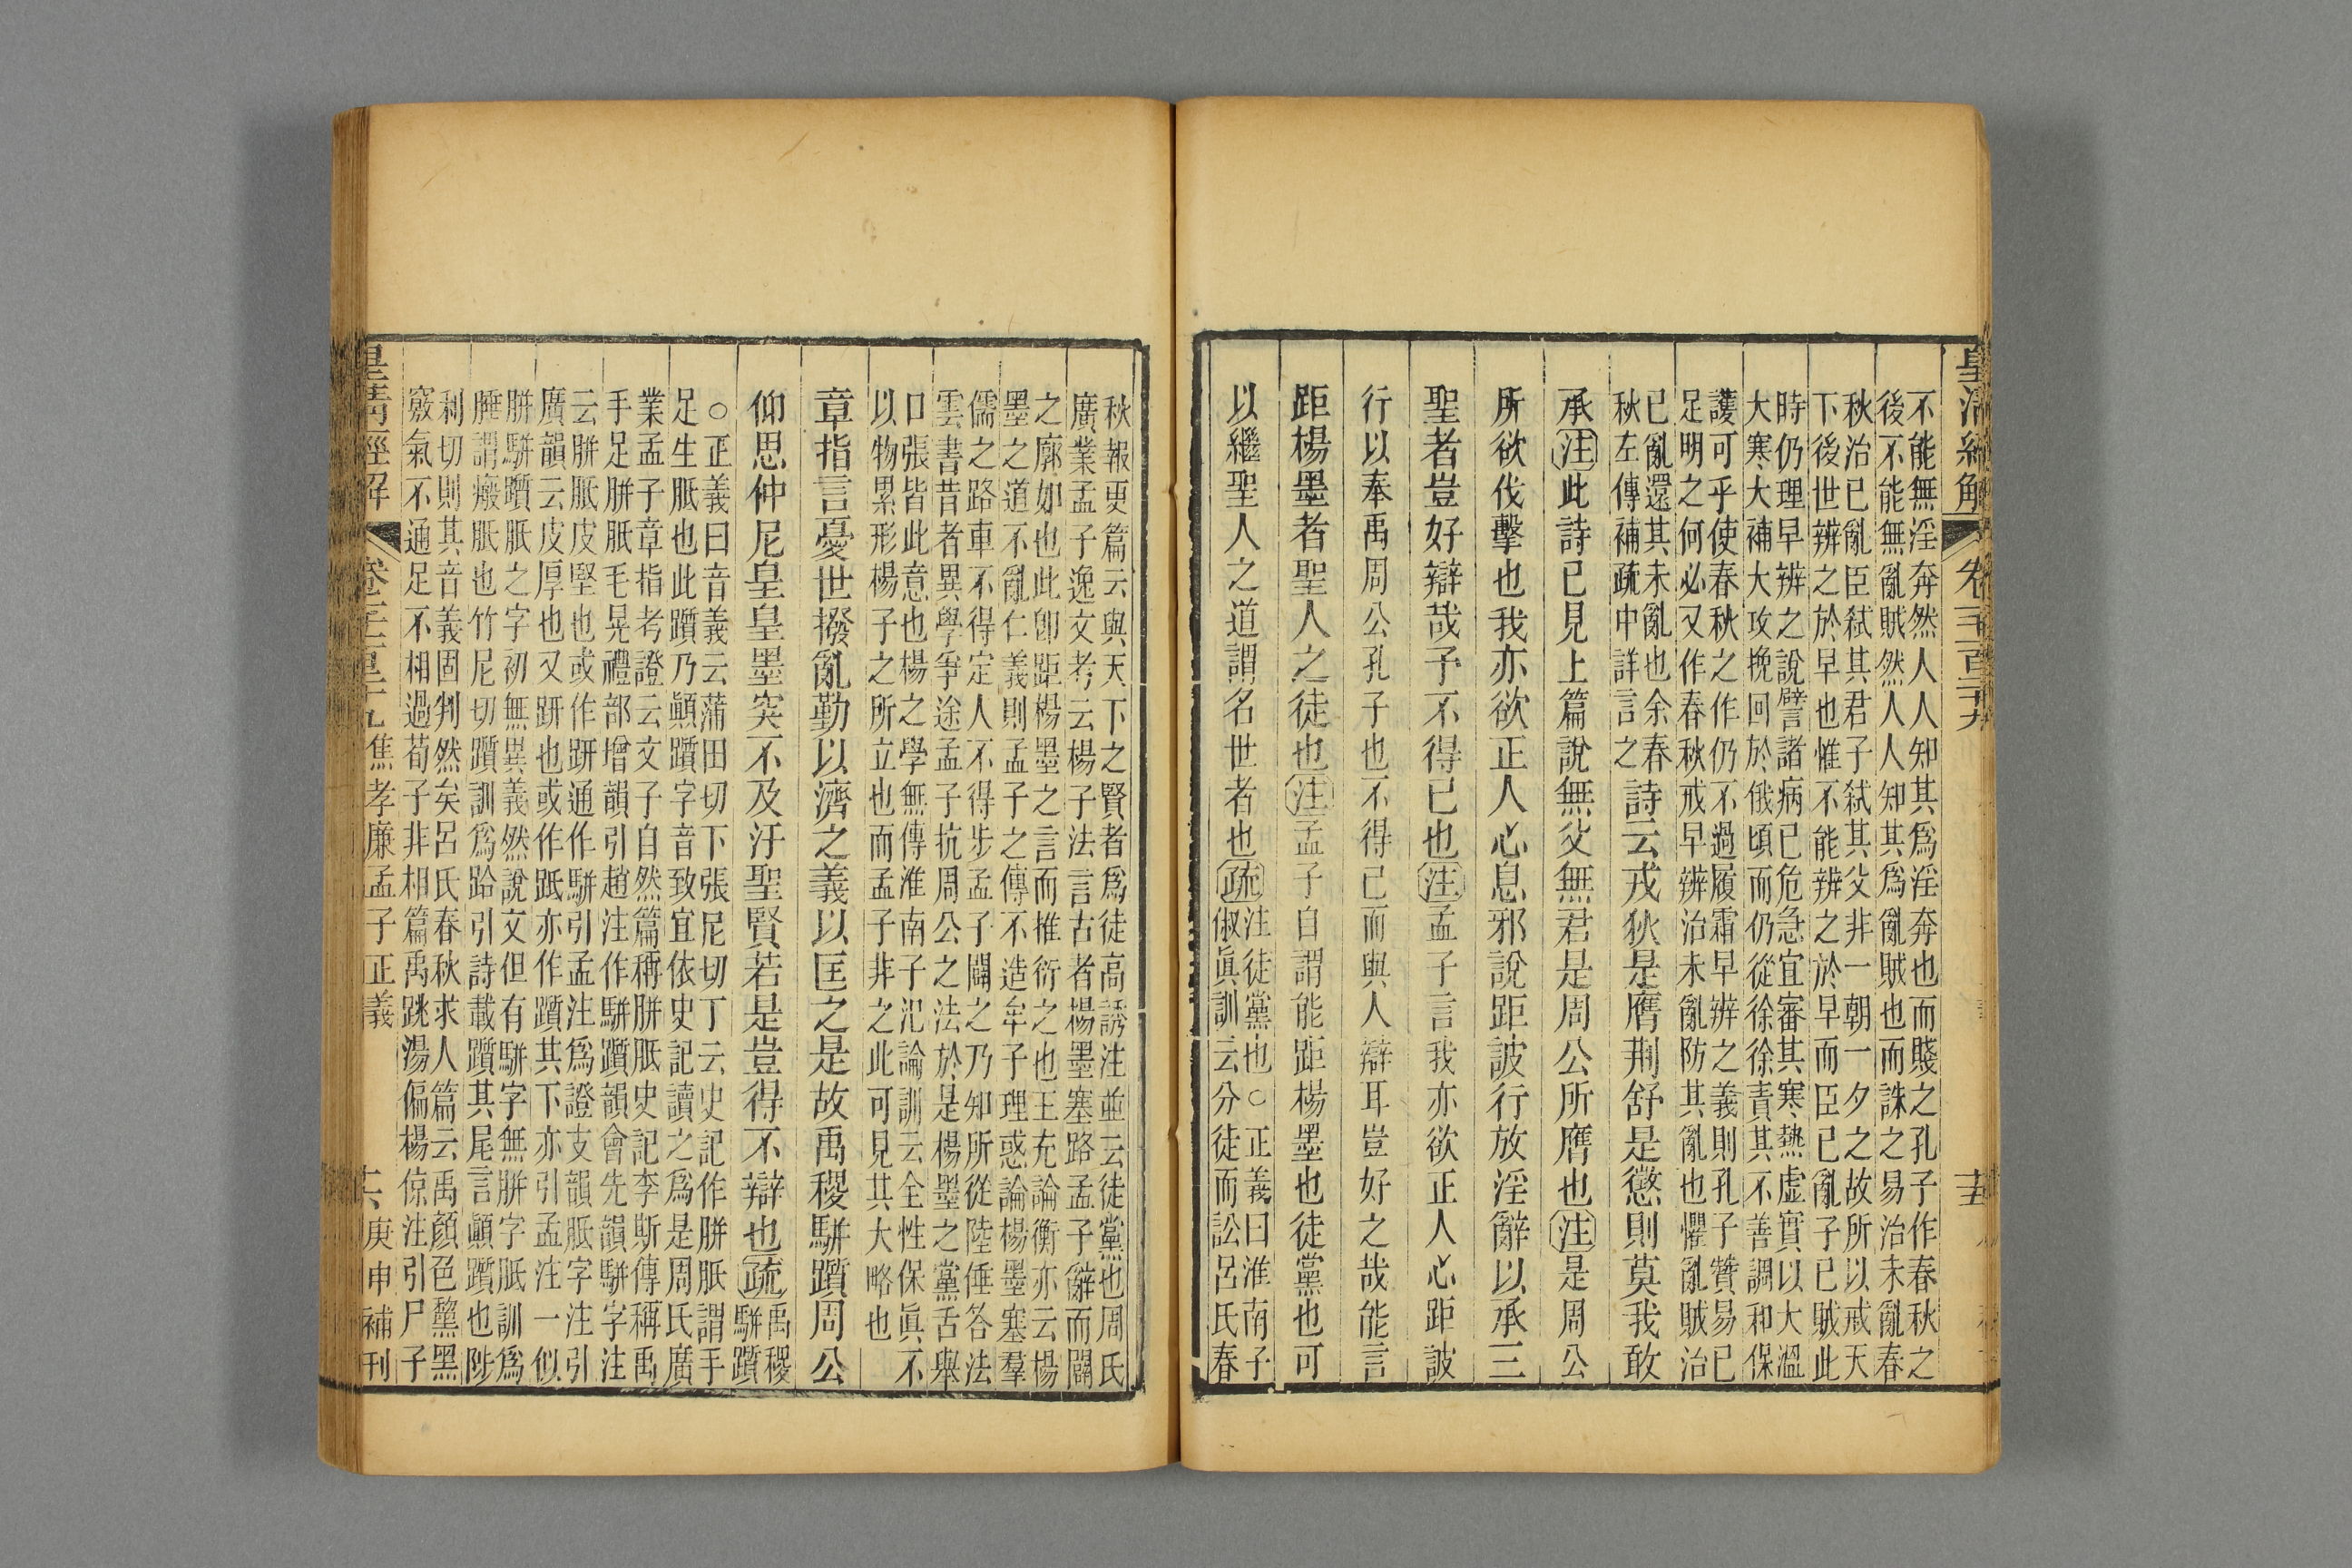 皇清經解
卷一千一百三十九
十五
不能無淫奔然人人知其爲淫奔也而賤之孔子作春秋之
後不能無亂賊然人人知其爲亂賊也而誅之易治未亂春
秋治已亂臣弑其君子弑其父非一朝一夕之故所以戒天
下後世辨之於早也惟不能辨之於早而臣已亂子已賊此
時仍理早辨之說譬諸病已危急宜審其寒熱虛實以大溫
大寒大補大攻挽回於俄頃而仍從徐徐責其不善調和保
護可乎使春秋之作仍不過履霜早辨之義則孔子贊易已
足明之何必又作春秋戒早辨治未亂防其亂也懼亂賊治
已亂還其未亂也余春
秋左傳補疏中詳言之
詩云戎狄是膺荆舒是懲則莫我敢
承注此詩已見上篇說無父無君是周公所膺也注是周公
所欲伐擊也我亦欲正人心息邪說距詖行放淫辭以承三
聖者豈好辯哉予不得已也注孟子言我亦欲正人心距詖
行以奉禹周公孔子也不得已而與人辯耳豈好之哉能言
距楊墨者聖人之徒也注孟子自謂能距楊墨也徒黨也可
以繼聖人之道謂名世者也疏
注徒黨也○正義曰淮南子
俶眞訓云分徒而訟呂氏春
秋報更篇云與天下之賢者爲徒高誘注並云徒黨也周氏
廣業孟子逸文考云楊子法言古者楊墨塞路孟子辭而闢
之廓如也此卽距楊墨之言而推衍之也王充論衡亦云楊
墨之道不亂仁義則孟子之傳不造牟子理惑論楊墨塞羣
儒之路車不得定人不得步孟子闢之乃知所從陸倕答法
雲書昔者異學爭途孟子抗周公之法於是楊墨之黨舌舉
口張皆此意也楊之學無傳淮南子氾論訓云全性保眞不
以物累形楊子之所立也而孟子非之此可見其大略也
章指言憂世撥亂勤以濟之義以匡之是故禹稷駢躓周公
仰思仲尼皇皇墨突不及汙聖賢若是豈得不辯也疏
禹稷
駢躓
○正義曰音義云蒲田切下張尼切丁云史記作胼胝謂手
足生胝也此躓乃顚躓字音致宜依史記讀之爲是周氏廣
業孟子章指考證云文子自然篇稱胼胝史記李斯傳稱禹
手足胼胝毛晃禮部增韻引趙注作駢躓韻會先韻駢字注
云胼胝皮堅也或作跰通作駢引孟注爲證支韻胝字注引
廣韻云皮厚也又跰也或作跖亦作躓其下亦引孟注一似
胼駢躓胝之字初無異義然說文但有駢字無胼字胝訓爲
腄謂瘢胝也竹尼切躓訓爲跲引詩載躓其尾言顚躓也陟
利切則其音義固判然矣呂氏春秋求人篇云禹顏色黧黑
竅氣不通足不相過荀子非相篇禹跳湯偏楊倞注引尸子
皇清經解
焦孝廉孟子正義
十六
庚申補刊